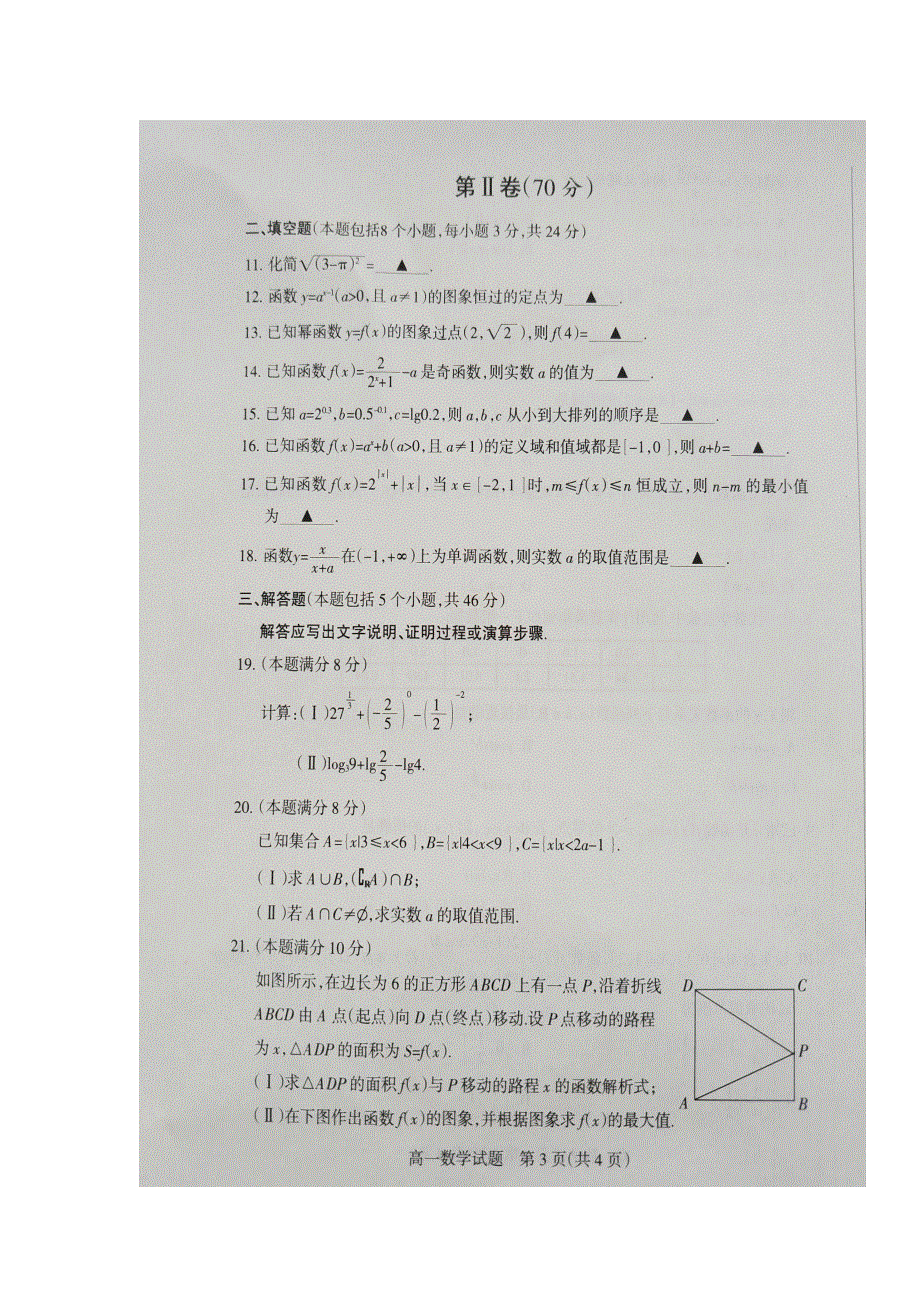 第Ⅱ卷(70 分)
二、填空题(本题包括8 个小题,每小题 3 分,共 24 分)
11. 化简√(3-π)² =▲.
12. 函数 y=aˣ⁻¹(a>0,且 a≠1)的图象恒过的定点为 ▲ .
13. 已知幂函数 y=f(x)的图象过点(2,√2 ),则 f(4)= ▲ .
14. 已知函数 f(x)=2/(2ˣ+1)-a 是奇函数,则实数 a 的值为 ▲ .
15. 已知 a=2^0.3,b=0.5^-0.1,c=lg0.2,则 a,b,c 从小到大排列的顺序是 ▲ .
16. 已知函数 f(x)=aˣ+b(a>0,且 a≠1)的定义域和值域都是[-1,0],则 a+b= ▲ .
17. 已知函数 f(x)=2^|x|+|x|,当 x∈[-2,1]时,m≤f(x)≤n 恒成立,则 n-m 的最小值
为 ▲ .
18. 函数y=x/(x+a) 在(-1,+∞)上为单调函数,则实数 a 的取值范围是 ▲ .
三、解答题(本题包括 5 个小题,共 46 分)
解答应写出文字说明、证明过程或演算步骤.
19. (本题满分 8 分)
计算:(Ⅰ)27^(1/3)+(-2/5)^0-(1/2)^-2;
(Ⅱ)log₃9+lg2/5-lg4.
20. (本题满分 8 分)
已知集合 A={x|3≤x<6},B={x|4<x<9},C={x|x<2a-1}.
(Ⅰ)求 A∪B,(∁RA)∩B;
(Ⅱ)若 A∩C≠∅,求实数 a 的取值范围.
21. (本题满分 10 分)
如图所示,在边长为 6 的正方形 ABCD 上有一点 P,沿着折线
ABCD 由 A 点(起点)向 D 点(终点)移动.设 P 点移动的路程
为 x,△ADP 的面积为 S=f(x).
(Ⅰ)求△ADP 的面积 f(x)与 P 移动的路程 x 的函数解析式;
(Ⅱ)在下图作出函数 f(x)的图象,并根据图象求 f(x)的最大值.
D
C
P
A
B
高一数学试题 第 3 页(共 4 页)